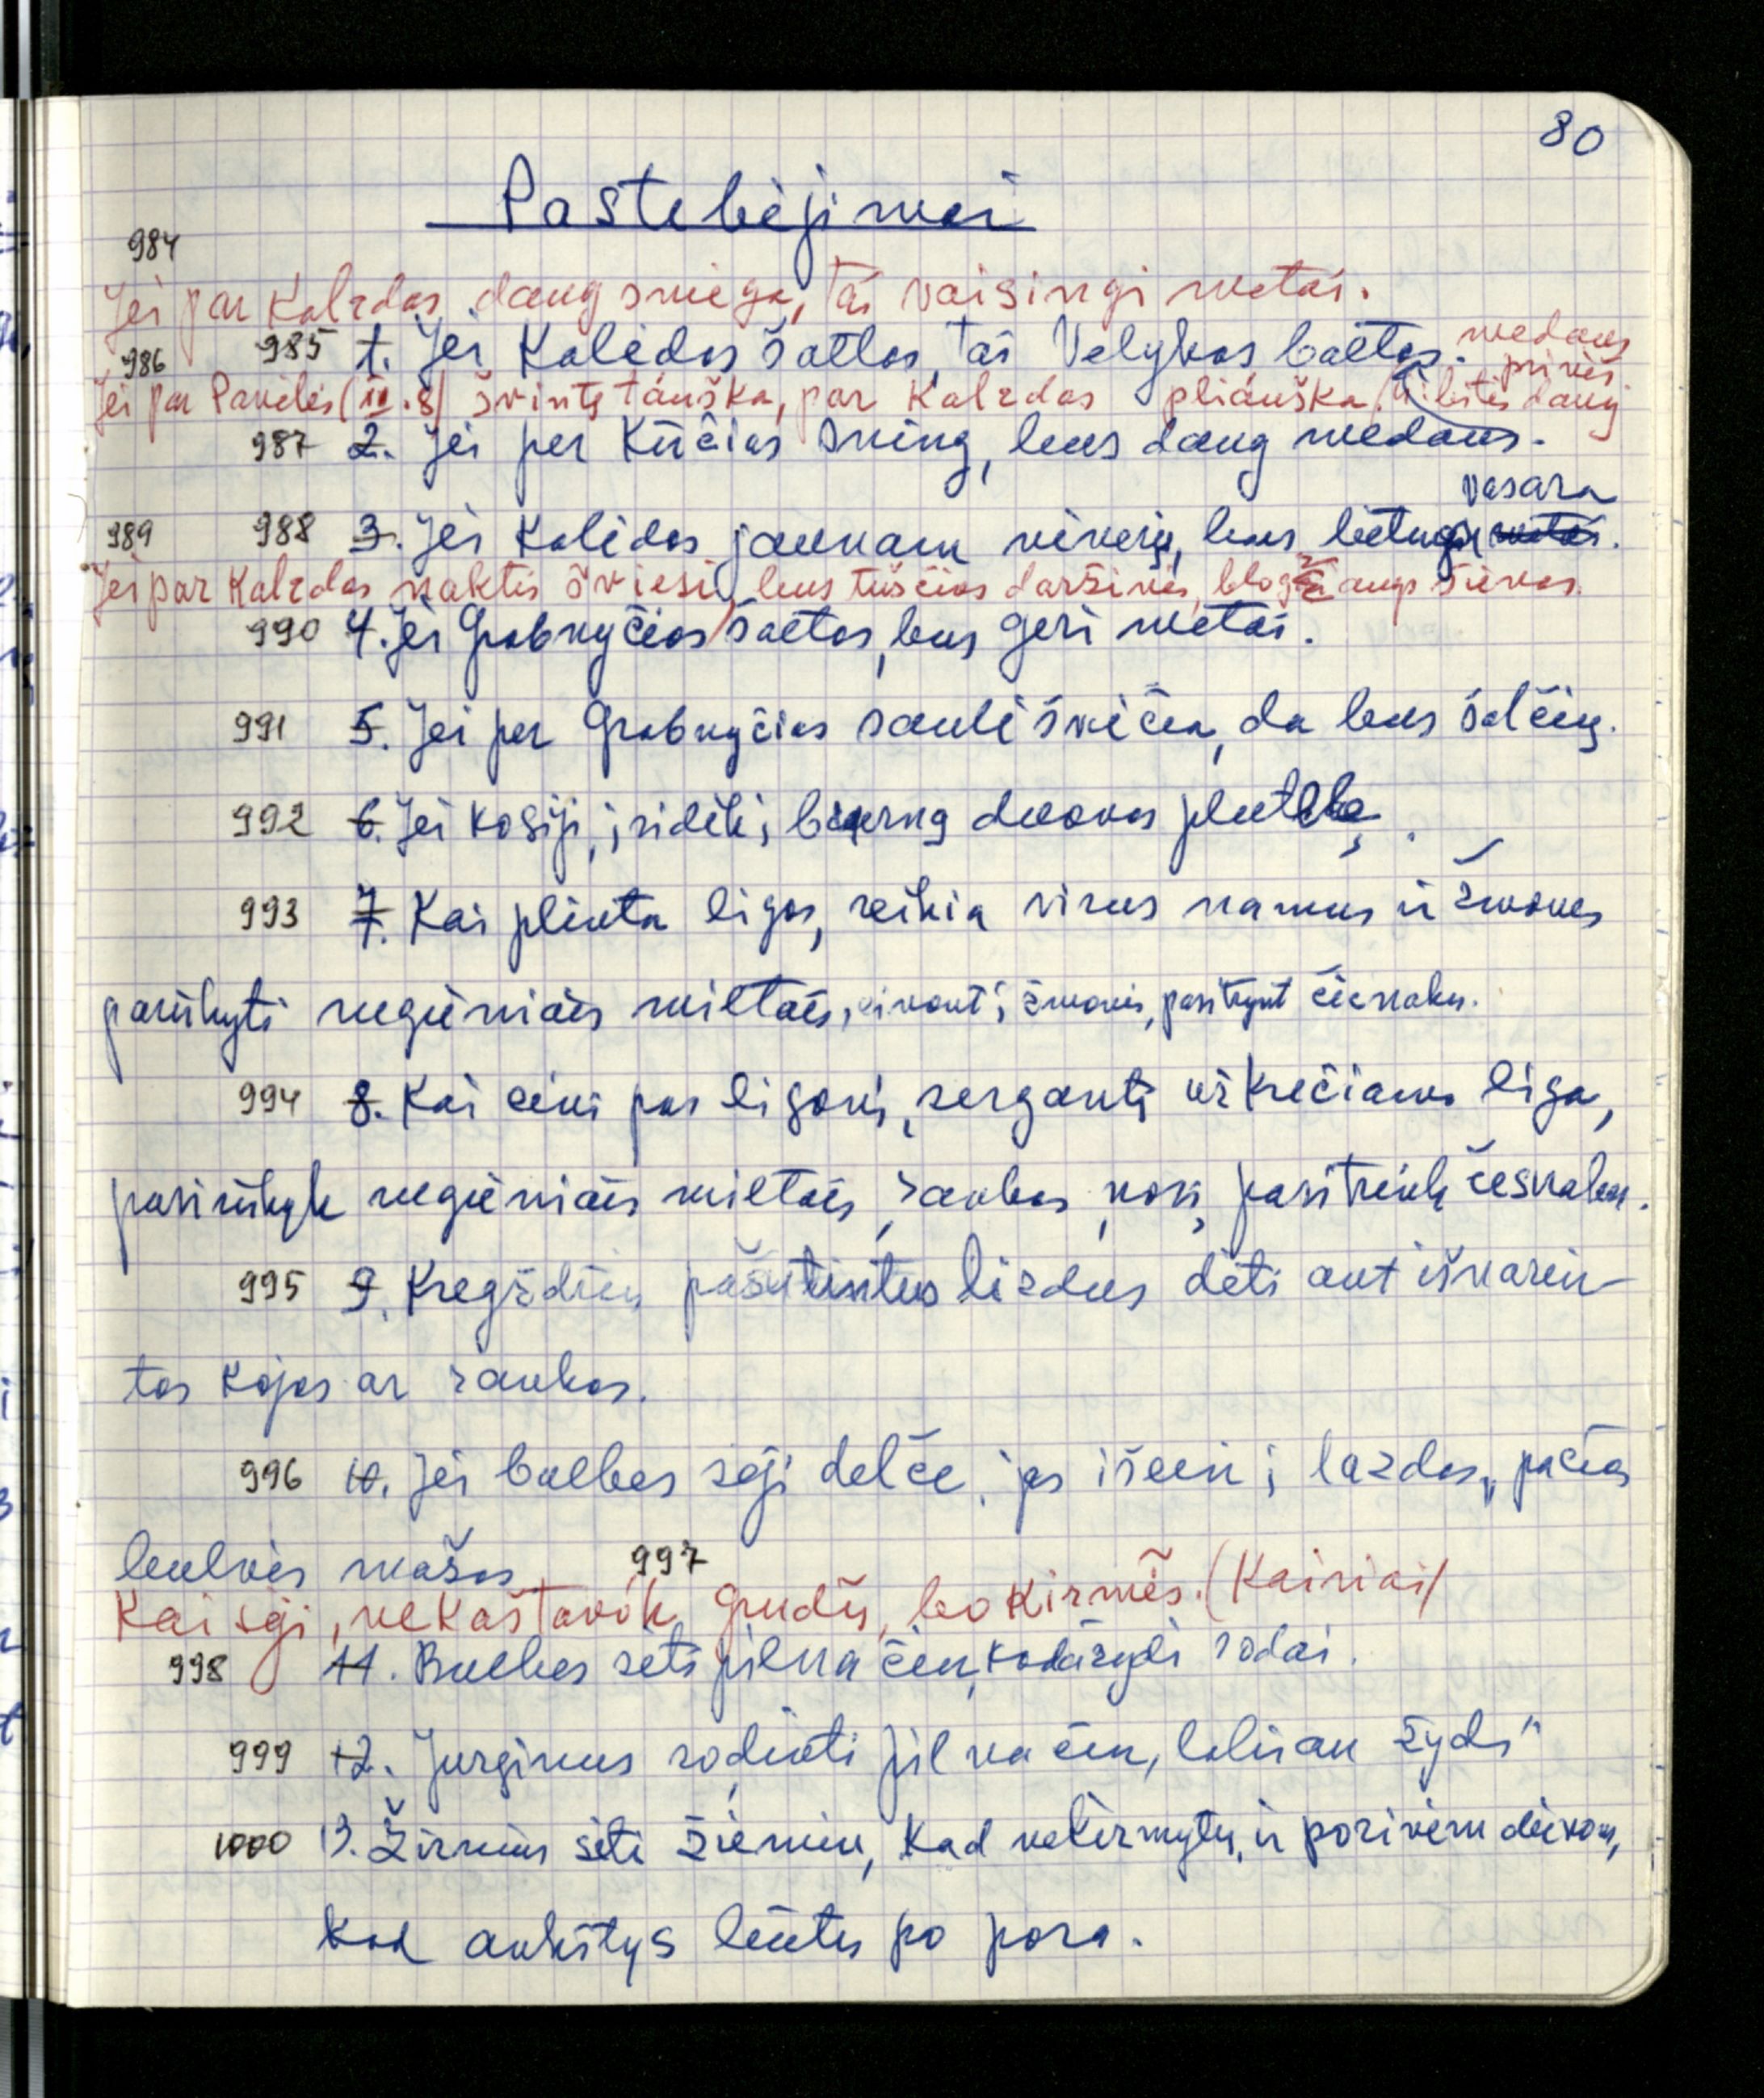 80
Pastebėjimai
984
Jei par Kalėdas daug sniego, tai vaisingi metai.
985 1. Jei Kalėdos šaltos, tai Velykos baltos.
986
medaus
prineš.
Jei par Panelės (XII.8) švintų táuška, par Kalėdas pliáuška, bitės daug
987 2. Jei per Kūčias sning, bus daug medaus.
vasara
989 988 3. Jei Kalėdos jaunam mėnesy, bus lietinga metai.
Jei par Kalėdas naktis šviesi, bus tuščios daržinės, blogai augs šienas.
990 4. Jei Grabnyčios šaltos, bus geri metai.
991 5. Jei per Grabnyčias saulė šviečia, da bus šalčių.
992 6. Jei kosiji, įsidėk į burną duonos plutelę.
993 7. Kai plinta ligos, reikia visus namus ir žmones
parūkyti ruginiais miltais, einant į žmones, pasitrynt česnaku.
994 8. Kai eini pas ligonį, sergantį užkrečiama liga,
pasirūkyk ruginiais miltais, rankas, nosį pasitrink česnaku.
995 9. Kregždžių pašutintus lizdus dėti ant išnarin-
tos kojos ar rankos.
996 10. Jei bulbes sėji delče, jos išein į lazdas, pačios
bulvės mažos
997
Kai sėji, nekaštavók grūdų, bo kirmės. (Kairiai)
998 11. Bulbes sėti pilnačiu, kada žydi sodai.
999 12. Jurginus sodinti pilnačiu, labiau žydi"
1000 13. Žirnius sėti žiemiu, kad nekirmytų, ir poriniam dienom,
kad ankštys būtų po porą.